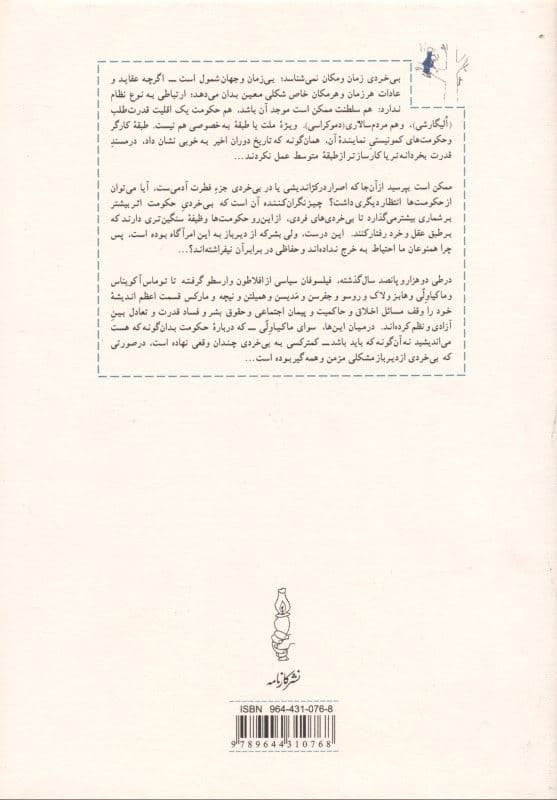 بی‌خردی زمان ومکان نمی‌شناسد؛ بی‌زمان وجهان شمول است ــ اگرچه عقاید و
عادات هرزمان وهرمکان خاص شکلی معین بدان می‌دهد؛ ارتباطی به نوع نظام
ندارد: هم سلطنت ممکن است موجد آن باشد، هم حکومت یک اقلیت قدرت‌طلب
(اُلیگارشی)، وهم مردم‌سالاری (دموکراسی). ویژهٔ ملت یا طبقهٔ به خصوصی هم نیست. طبقهٔ کارگر
وحکومت‌های کمونیستی نمایندهٔ آن، همان‌گونه که تاریخ دوران اخیر به خوبی نشان داد، درمسند
قدرت بخردانه‌تریا کارسازتر ازطبقهٔ متوسط عمل نکردند...
ممکن است بپرسید ازآن‌جا که اصراردرکژاندیشی یا در بی‌خردی جزءِ فطرت آدمی‌ست، آیا می‌توان
از حکومت‌ها انتظاردیگری داشت؟ چیز نگران‌کننده آن است که بی‌خردیِ حکومت اثربیشتر
برشماری بیشترمی‌گذارد تا بی‌خردی‌های فردی، ازاین‌رو حکومت‌ها وظیفهٔ سنگین‌تری دارند که
برطبق عقل وخرد رفتارکنند. این درست، ولی بشرکه از دیرباز به این امرآگاه بوده است، پس
چرا همنوعان ما احتیاط به خرج نداده‌اند وحفاظی در برابرآن نیفراشته‌اند؟...
درطی دوهزارو پانصد سال‌گذشته، فیلسوفان سیاسی ازافلاطون وارسطو گرفته تا توماس آکویناس
وماکیاولّی وهابز ولاک و روسو و جفرسن و مَدیسن و همیلتن و نیچه و مارکس قسمت اعظم اندیشهٔ
خود را وقف مسائل اخلاق و حاکمیت و پیمان اجتماعی وحقوق بشر و فساد قدرت و تعادل بین
آزادی و نظم کرده‌اند. درمیان این‌ها، سوای ماکیاولّی ــ که دربارهٔ حکومت بدان‌گونه که هست
می‌اندیشید نه آن‌گونه که باید باشد ــ کمترکسی به بی‌خردی چندان وقعی نهاده است، درصورتی
که بی‌خردی ازدیرباز مشکلی مزمن و همه‌گیر بوده است...
نشر کارنامه
ISBN 964-431-076-8
9 789644 310768